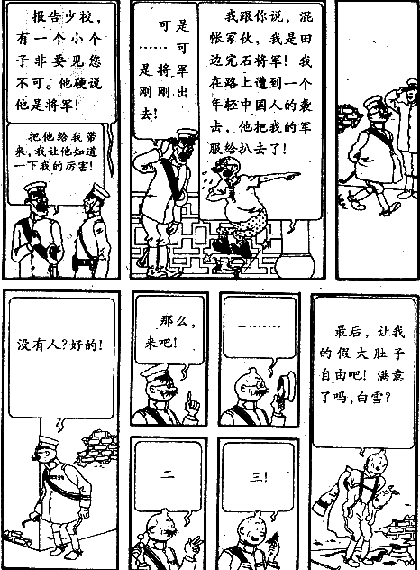 报告少校,
有一个小个
子非要见您
不可。他硬说
他是将军!
把他给我带
来,我让他知道
一下我的厉害!
可是
……可
是将军
刚刚出
去!
我跟你说,混
帐家伙,我是田
边完石将军!我
在路上遭到一个
年轻中国人的袭
击,他把我的军
服给扒去了!
没有人?好的!
那么,
来吧!
一
二
三!
最后,让我
的假大肚子
自由吧!满意
了吗,白雪?